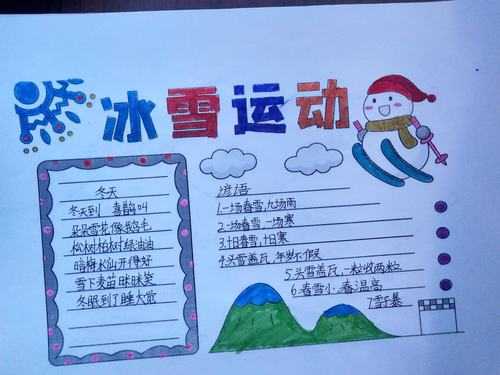 冰雪运动
冬天
冬天到 喜鹊叫
朵朵雪花像鹅毛
松树柏树绿油油
腊梅水仙开得好
雪下麦苗眯眯笑
冬眠到了睡大觉
谚语
1.一场春雪,九场雨
2.一场春雪 一场寒
3.十日春雪,十日寒
4.头雪盖瓦,年岁不假
5.头雪盖瓦,一粒收两粒
6.春雪小,春温高